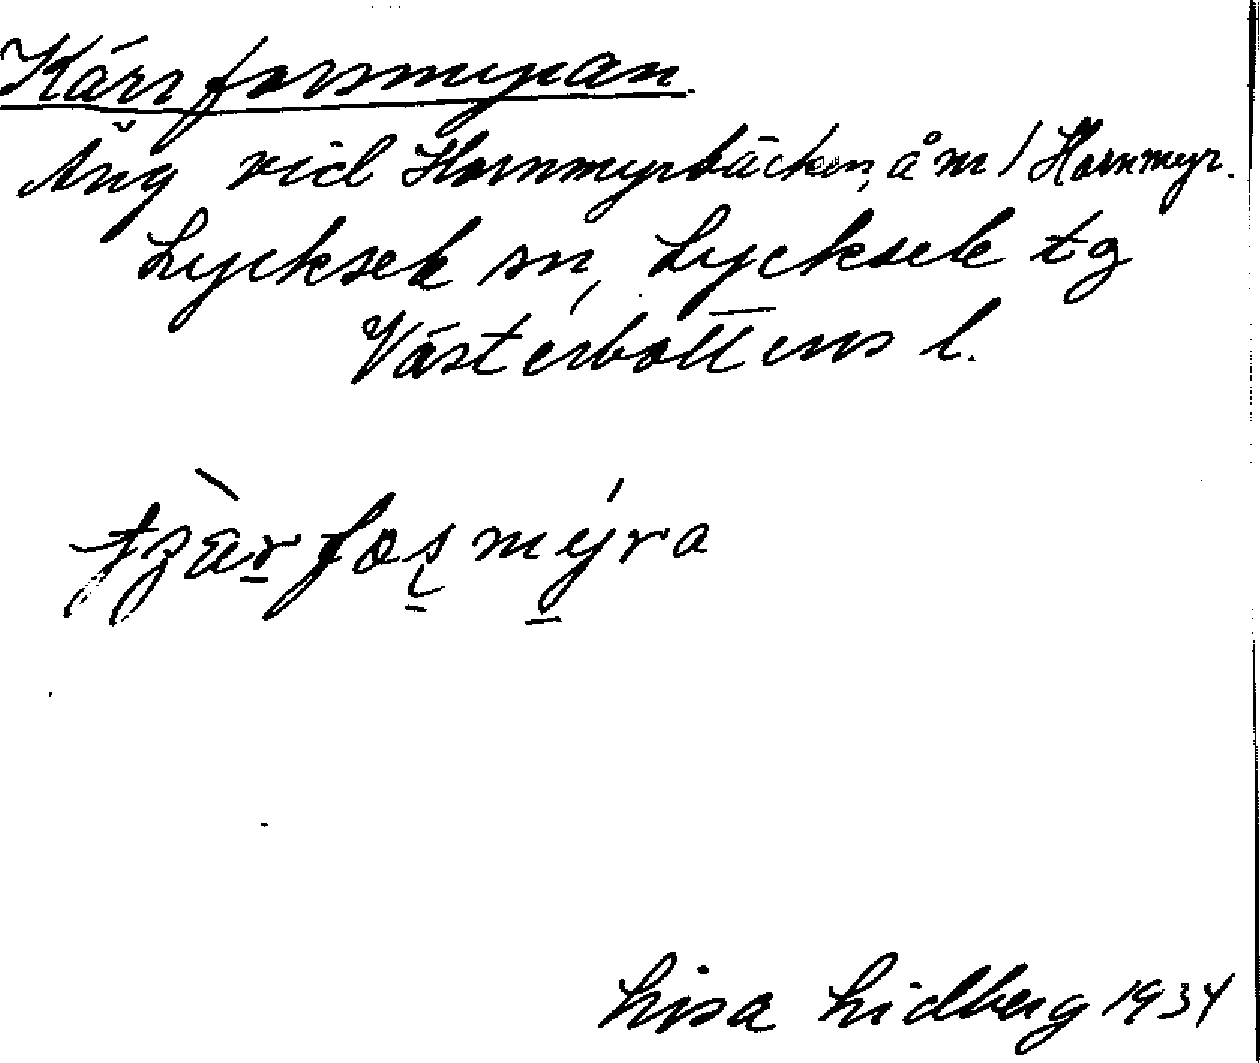 Kärrforsmyran.
Äng vid Hornmyrbäcken, å m / Hornmyr.
Lycksele sn, Lycksele tg
Västerbottens l.
Lisa Lidberg 1934